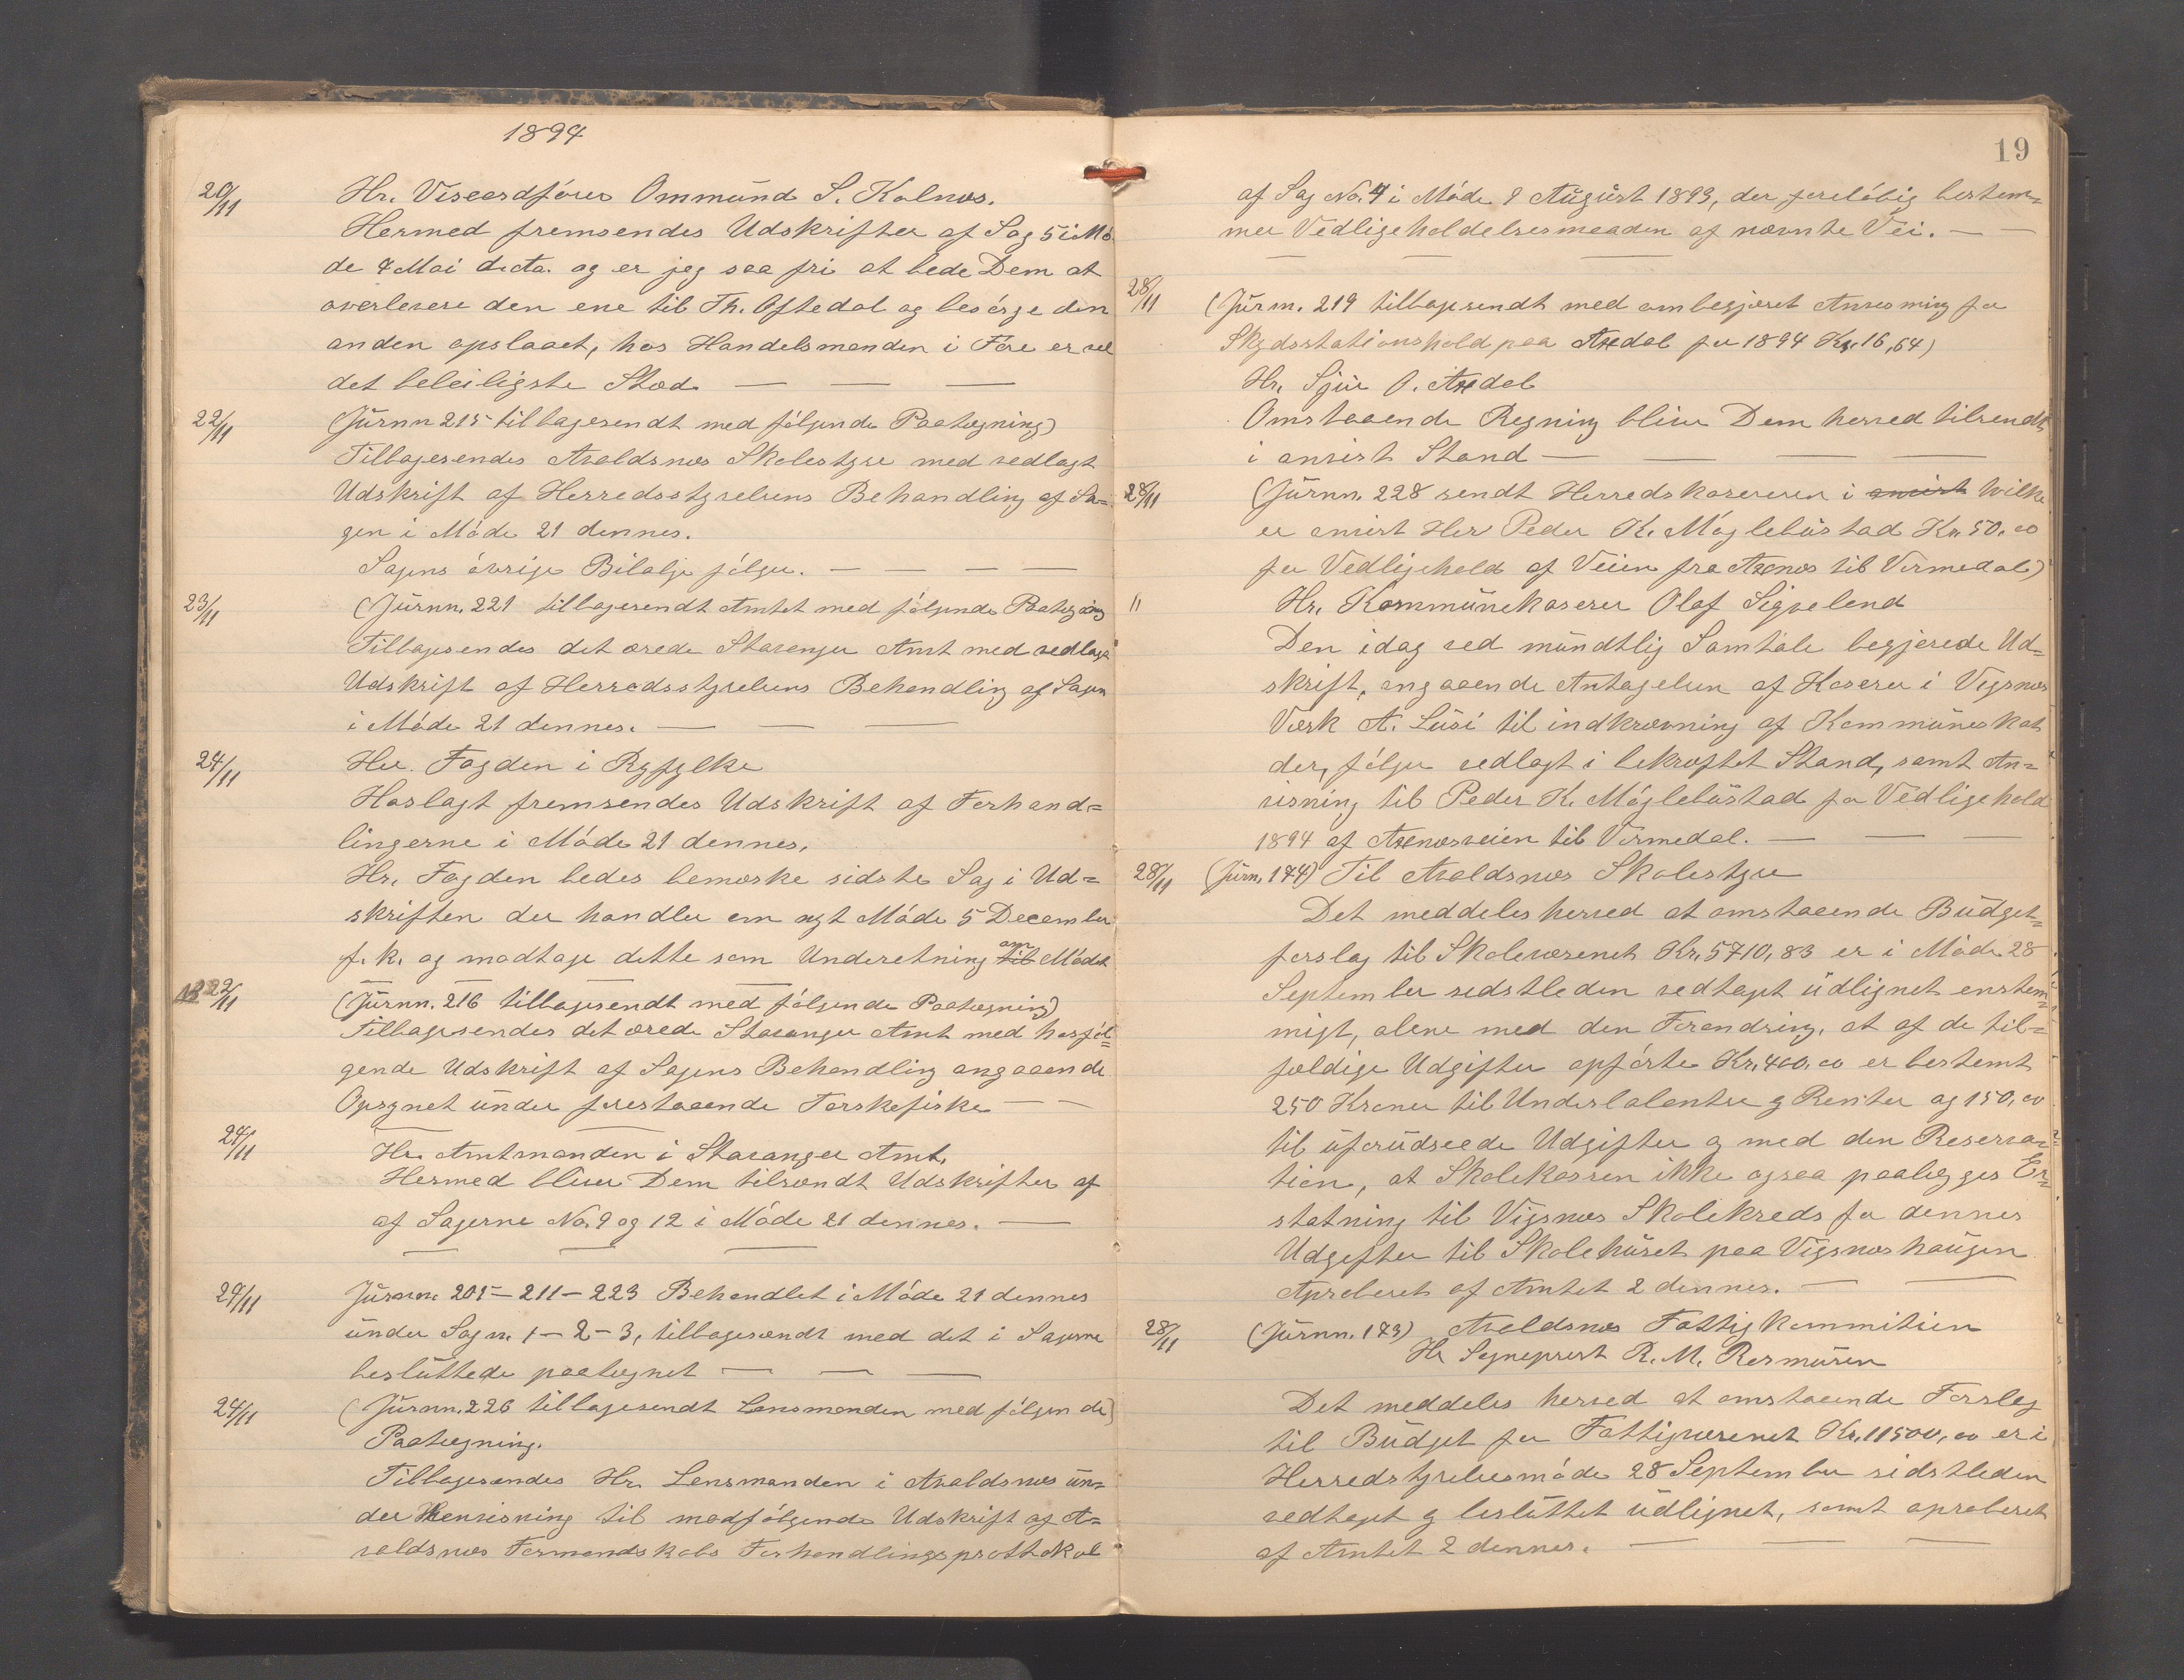 1894
20/11 Hr. Viseordförer Ommund S. Kolnes.
Hermed fremsendes Udskrifter af Sag 5 i Mö
de 7 Mai d. Aa. og er jeg saa fri at bede Dem at
overlevere den ene til Th. Oftedal og besörge den
anden opslaaet, hos Handelsmanden i Före er vel
det beleiligste Stæd — — —
22/11 (Jurnn 215 tilbagesendt med fölgende Paategning)
Tilbagesendes Avaldsnes Skolestyre med vedlagt
Udskrift af Herredsstyrelsens Behandling af Sa-
gen i Möde 21 dennes.
Sagens övrige Bilalge fölger. — — — —
23/11 (Jurnn. 221 tilbagesendt Amtet med fölgende Paategning
Tilbagesendes det ærede Stavanger Amt med vedlagt
Udskrift af Herredsstyrelsens Behandling af Sagen
i Möde 21 dennes. — — —
24/11 Her. Fogden i Ryfylke
Hoslagt fremsendes Udskrift af Forhand=
lingerne i Möde 21 dennes.
Hr. Fogden bedes bemærke sidste Sag i Ud=
skriften der handler om nyt Möde 5 December
f. k. og modtage dette som Underetning til om Mödet
22/11 (Jurnn. 216 tilbagesendt med fölgende Paategning)
Tilbagesendes det ærede Stavanger Amt med hosföl=
gende Udskrift af Sagens Behandling angaaende
Opsynet under forestaaende Torskefiske — —
24/11 Hr. Amtmanden i Stavanger Amt.
Hermed bliver Dem tilsendt Udskrifter af
af Sagerne No. 9 og 12 i Möde 21 dennes. —
— — —
24/11 Jurnn. 205 – 211 – 223 Behandlet i Möde 21 dennes
under Sag n. 1 – 2 – 3, tilbagesendt med det i Sagerne
besluttede paategnet — — —
24/11 (Jurnn. 226 tilbagesendt Lensmanden med fölgende)
Paategning.
Tilbagesendes Hr. Lensmanden i Avaldsnes un=
der Henvisning til medfölgende Udskrift af A=
valdsnes Formandskabs Forhandlingsprottokol
19
af Sag No. 4 i Möde 9 August 1893, der foreløbig bestem=
mer Vedligeholdelsesmaaden af nævnte Vei. — —
— — —
28/11 (Jurn. 219 tilbagesendt med ombegjæret Anvisning for
Skydsstationshold paa Axdal for 1894 Kr. 16,64)
Hr. Sjur O. Axdal
Omstaaende Regning bliver Dem herved tilsendt
i anvist Stand — — — —
28/11 (Jurnn. 228 sendt Herredskasereren i anvist hvilke
er anvist Her Peder K. Möglebustad Kr. 50.00
for Vedligehold af Veien fra Axenes til Vermedal)
11 Hr. Kommunekaserer Olaf Sigveland
Den idag ved mundtlig Samtale begjerede Ud=
skrift, angaaende Antagelsen af Kaserer i Vigsnes
Verk A. Lusi til indkrævning af Kommuneskat
der, fölger vedlagt i bekræftet Stand, samt An=
visning til Peder K. Möglebustad for Vedligehold
1894 af Axenesveien til Vermedal. — — —
28/11 (Jurn. 174) Til Avaldsnes Skolestyre
Det meddeles herved at omstaaende Budget=
forslag til Skolevæsenet Kr. 5710,83 er i Möde 28
September sidstleden vedtaget udlignet enstem=
migt, alene med den Forandring, at af de til=
fældige Udgifter opförte Kr. 400.00 er bestemt
250 Kroner til Underbalantse g Renter og 150,00
til uforudseede Udgifter g med den Reserva=
tion, at Skolekassen ikke ogsaa paalegges Er=
statning til Vigsnes Skolekreds for dennes
Udgifter til Skolehuset paa Vigsneshaugen
Aproberet af Amtet 2 dennes. — —
28/11 (Jurnn. 173) Avaldsnes Fattigkommition
Hr Sogneprest R. M. Rasmusen
Det meddeles herved at omstaaende Forslag
til Budget for Fattigvæsenet Kr. 11500,00 er i
Herredstyrelsesmöde 28 September sidstleden
vedtaget g besluttet udlignet, samt aproberet
af Amtet 2 dennes. — — —